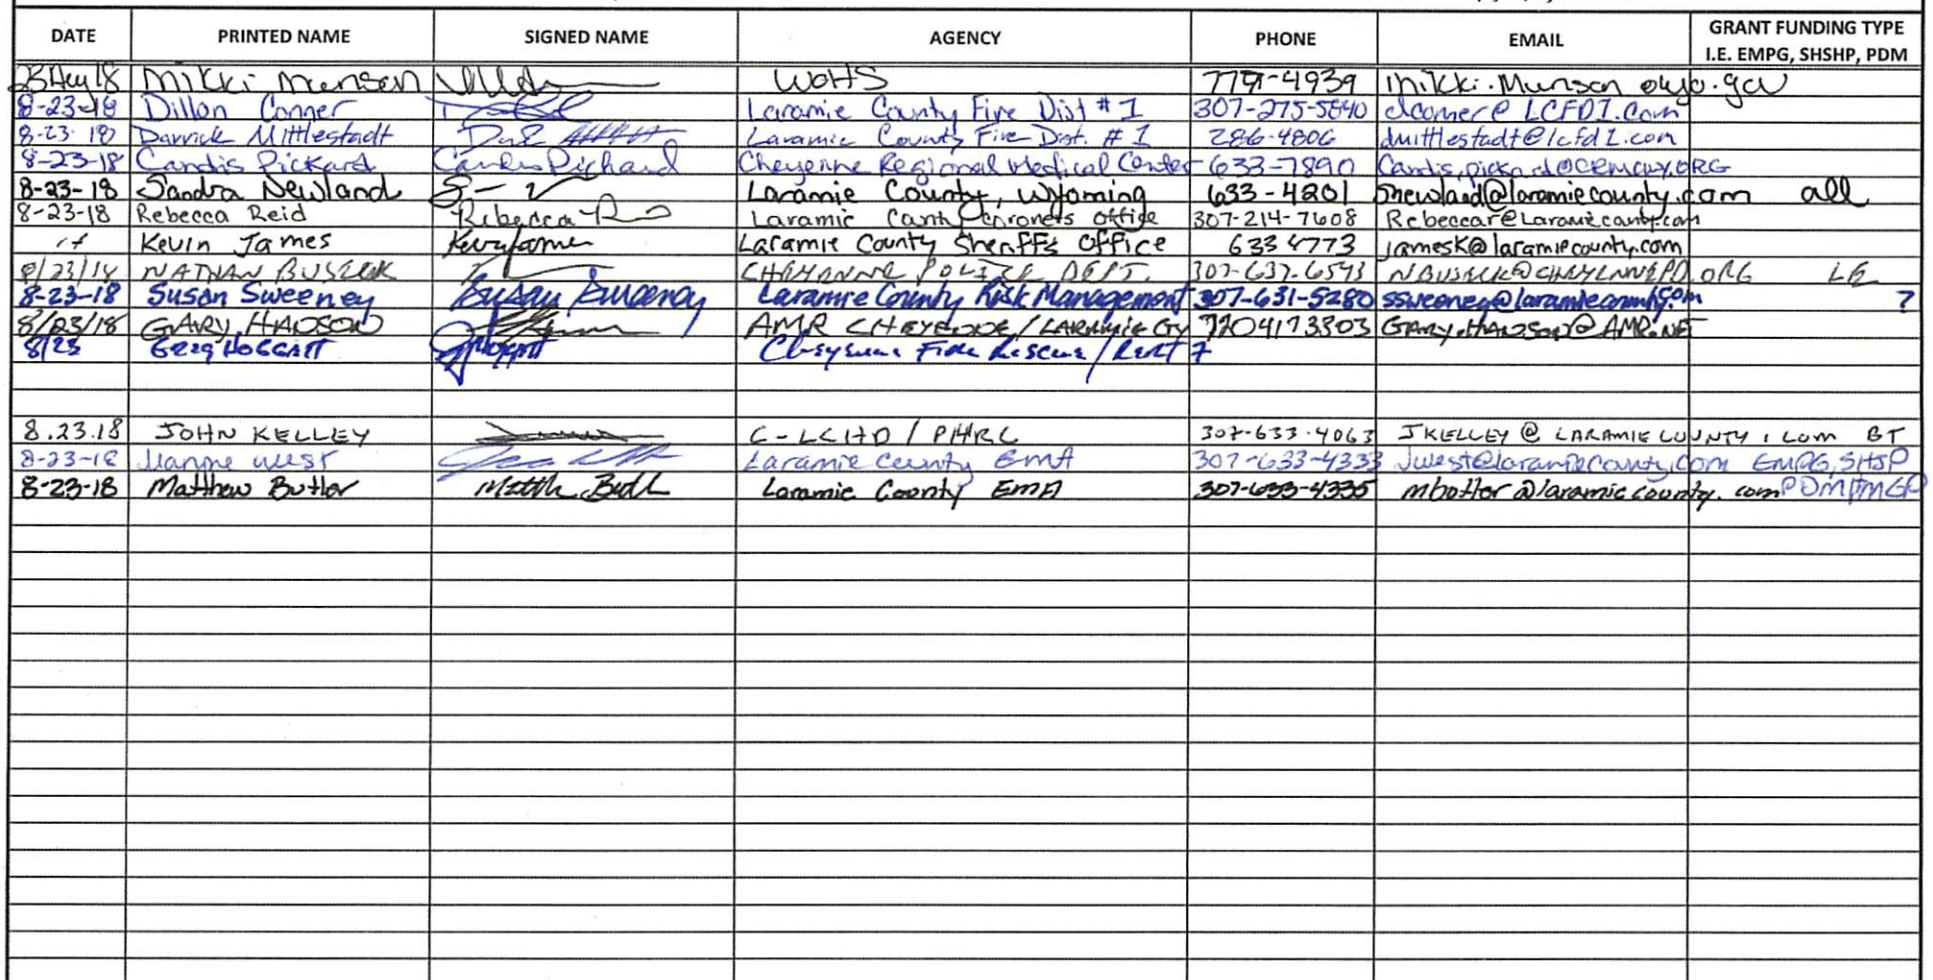 DATE PRINTED NAME SIGNED NAME AGENCY PHONE EMAIL GRANT FUNDING TYPE I.E. EMPG, SHSHP, PDM
23Aug18 Mikki Munson WOHS 777-4939 mikki.munson@wyo.gov
8-23-18 Dillon Conner Laramie County Fire Dist #1 307-275-5840 dconner@LCFD1.com
8-23-18 Darrick Mittlestadt Laramie County Fire Dist. #1 286-4806 dmittlestadt@lcfd1.com
8-23-18 Candis Pickard Candis Pickard Cheyenne Regional Medical Center 633-7890 Candis.pickard@CRMCWY.ORG
8-23-18 Sandra Newland Laramie County, Wyoming 633-4201 snewland@laramiecounty.com all
8-23-18 Rebecca Reid Rebecca R Laramie County Coroners Office 307-214-7608 Rebeccar@Laramiecounty.com
Kevin James Kevin James Laramie County Sheriffs Office 633 4773 jamesk@laramiecounty.com
8/23/18 NATHAN BUSEEK CHEYENNE POLICE DEPT. 307-637-6543 NBUSEEK@CHEYENNEPD.ORG LE
8-23-18 Susan Sweeney Susan Sweeney Laramie County Risk Management 307-631-5280 ssweeney@laramiecounty.com ?
8/23/18 GARY AMR CHEYENNE/LARAMIE CTY 7204173303
8/23 Greg Hoggatt Cheyenne Fire Rescue/ 7
8.23.18 JOHN KELLEY C-LCHD/PHRC 307-633-4063 JKELLEY@LARAMIECOUNTY.COM BT
8-23-18 Jeanne West Laramie County EMA 307-633-4333 Jwest@laramiecounty.com EMPG, SHSP
8-23-18 Matthew Butler Matth Butl Laramie County EMA 307-633-4335 mbutler@laramiecounty.com PDM